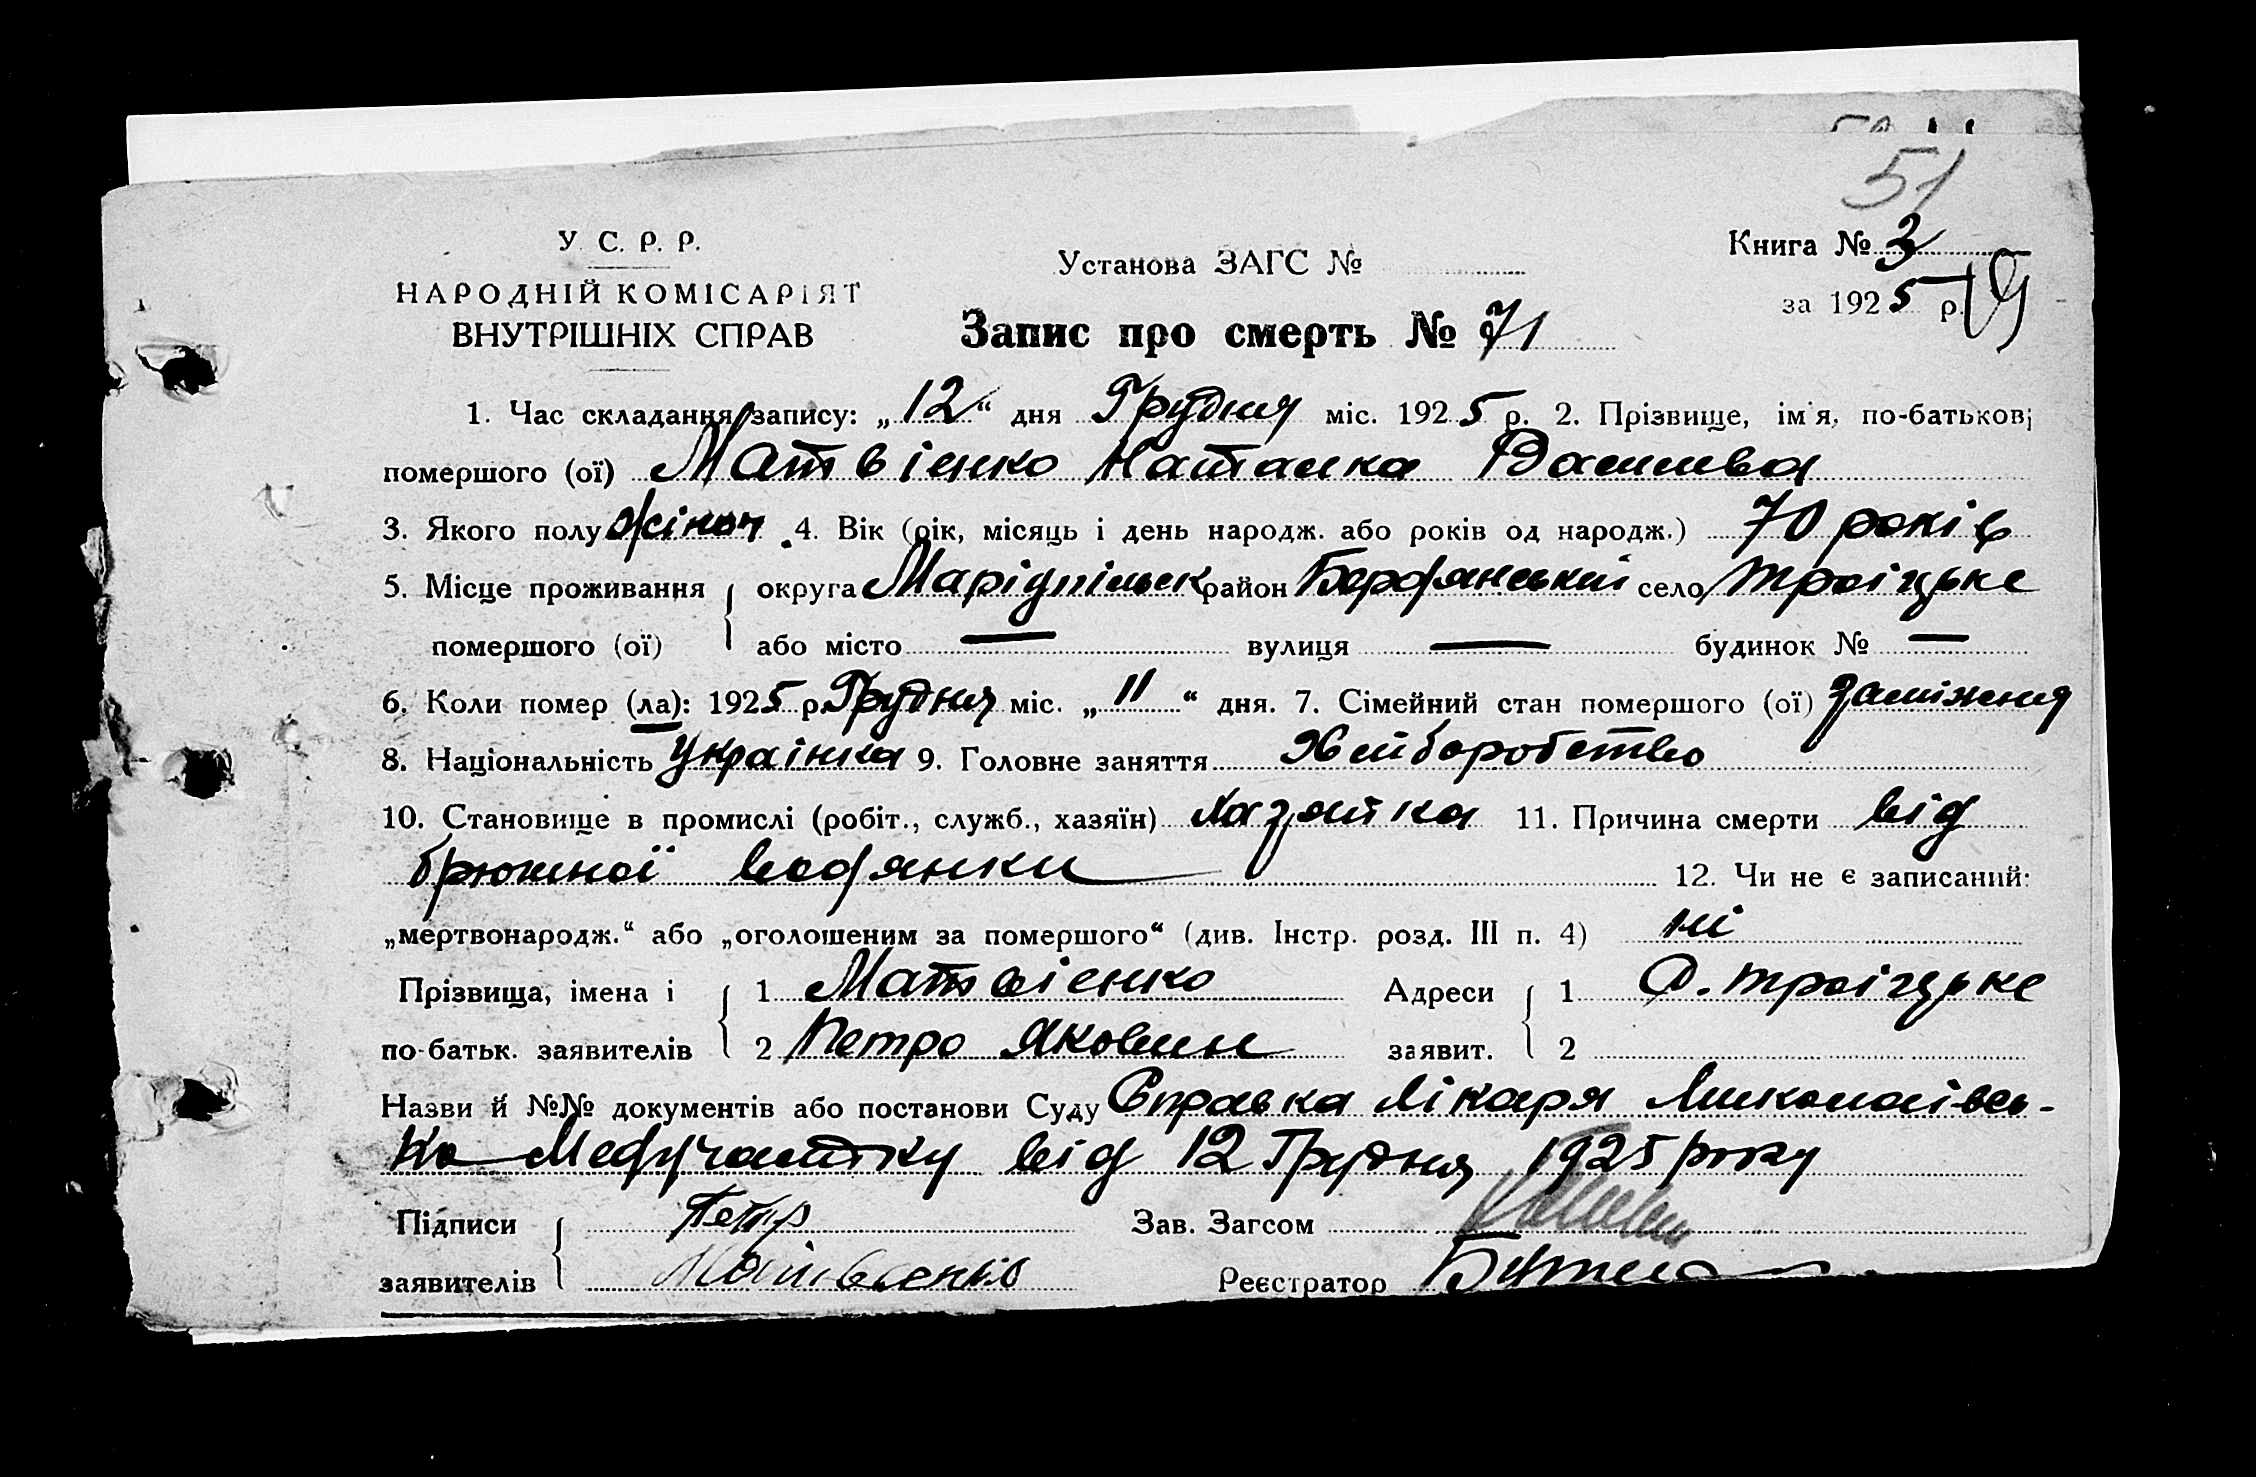 51
У. С. Р. Р.
НАРОДНІЙ КОМІСАРІЯТ
ВНУТРІШНІХ СПРАВ
Установа ЗАГС №
Книга № 3
за 1925 р.
Запис про смерть № 71
1. Час складання запису: „12“ дня Грудня міс. 1925 р. 2. Прізвище, ім'я, по-батькові
помершого (ої) Матвієнко Наталка Васильева
3. Якого полу жіноч. 4. Вік (рік, місяць і день народж. або років од народж.) 70 років
5. Місце проживання округа Маріупільск район Бердянський село Троіцьке
помершого (ої) або місто — вулиця — будинок № —
6. Коли помер (ла): 1925 р. Грудня міс. „11“ дня. 7. Сімейний стан помершого (ої) заміжня
8. Національність Украінка 9. Головне заняття Хлиборобство
10. Становище в промислі (робіт., служб., хазяїн) хазяйка 11. Причина смерти від
брюшної водянки 12. Чи не є записаний:
„мертвонародж.“ або „оголошеним за помершого“ (див. Інстр. розд. III п. 4) ні
Прізвища, імена і 1 Матвієнко Адреси 1 С. Троіцьке
по-батьк. заявителів 2 Петро Якович заявит. 2
Назви й №№ документів або постанови Суду Справка лікаря Миколаівсь-
ко Медучастку від 12 Грудня 1925 року
Підписи Петр Зав. Загсом
заявителів Матвеенко Реєстратор